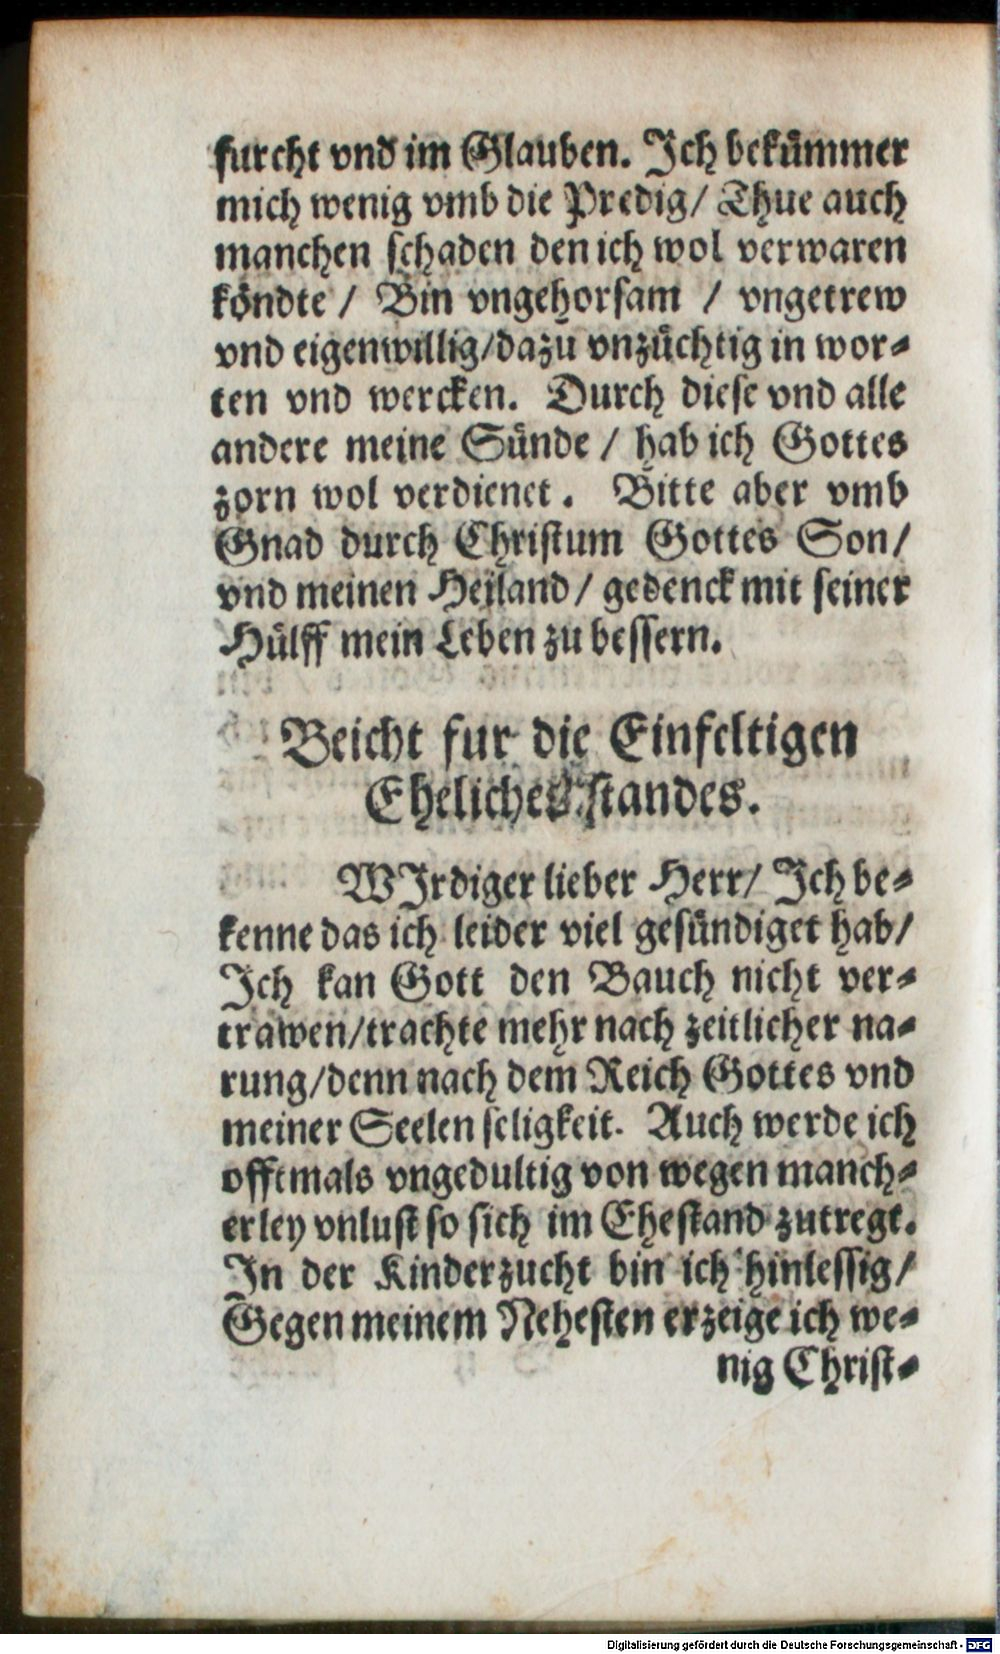 furcht vnd im Glauben. Ich bekümmer
mich wenig vmb die Predig/ Thue auch
manchen schaden den ich wol verwaren
köndte / Bin vngehorsam / vngetrew
vnd eigenwillig/dazu vnzüchtig in wor-
ten vnd wercken. Durch diese vnd alle
andere meine Sünde / hab ich Gottes
zorn wol verdienet. Bitte aber vmb
Gnad durch Christum Gottes Son/
vnd meinen Heiland / gedenck mit seiner
Hülff mein Leben zu bessern.
Beicht fur die Einfeltigen
Eheliches standes.
WIrdiger lieber Herr/ Ich be-
kenne das ich leider viel gesündiget hab/
Ich kan Gott den Bauch nicht ver-
trawen/trachte mehr nach zeitlicher na-
rung/denn nach dem Reich Gottes vnd
meiner Seelen seligkeit. Auch werde ich
offtmals vngedultig von wegen manch-
erley vnlust so sich im Ehestand zutregt.
In der Kinderzucht bin ich hinlessig/
Gegen meinem Nehesten erzeige ich we-
nig Christ-
Digitalisierung gefördert durch die Deutsche Forschungsgemeinschaft - DFG